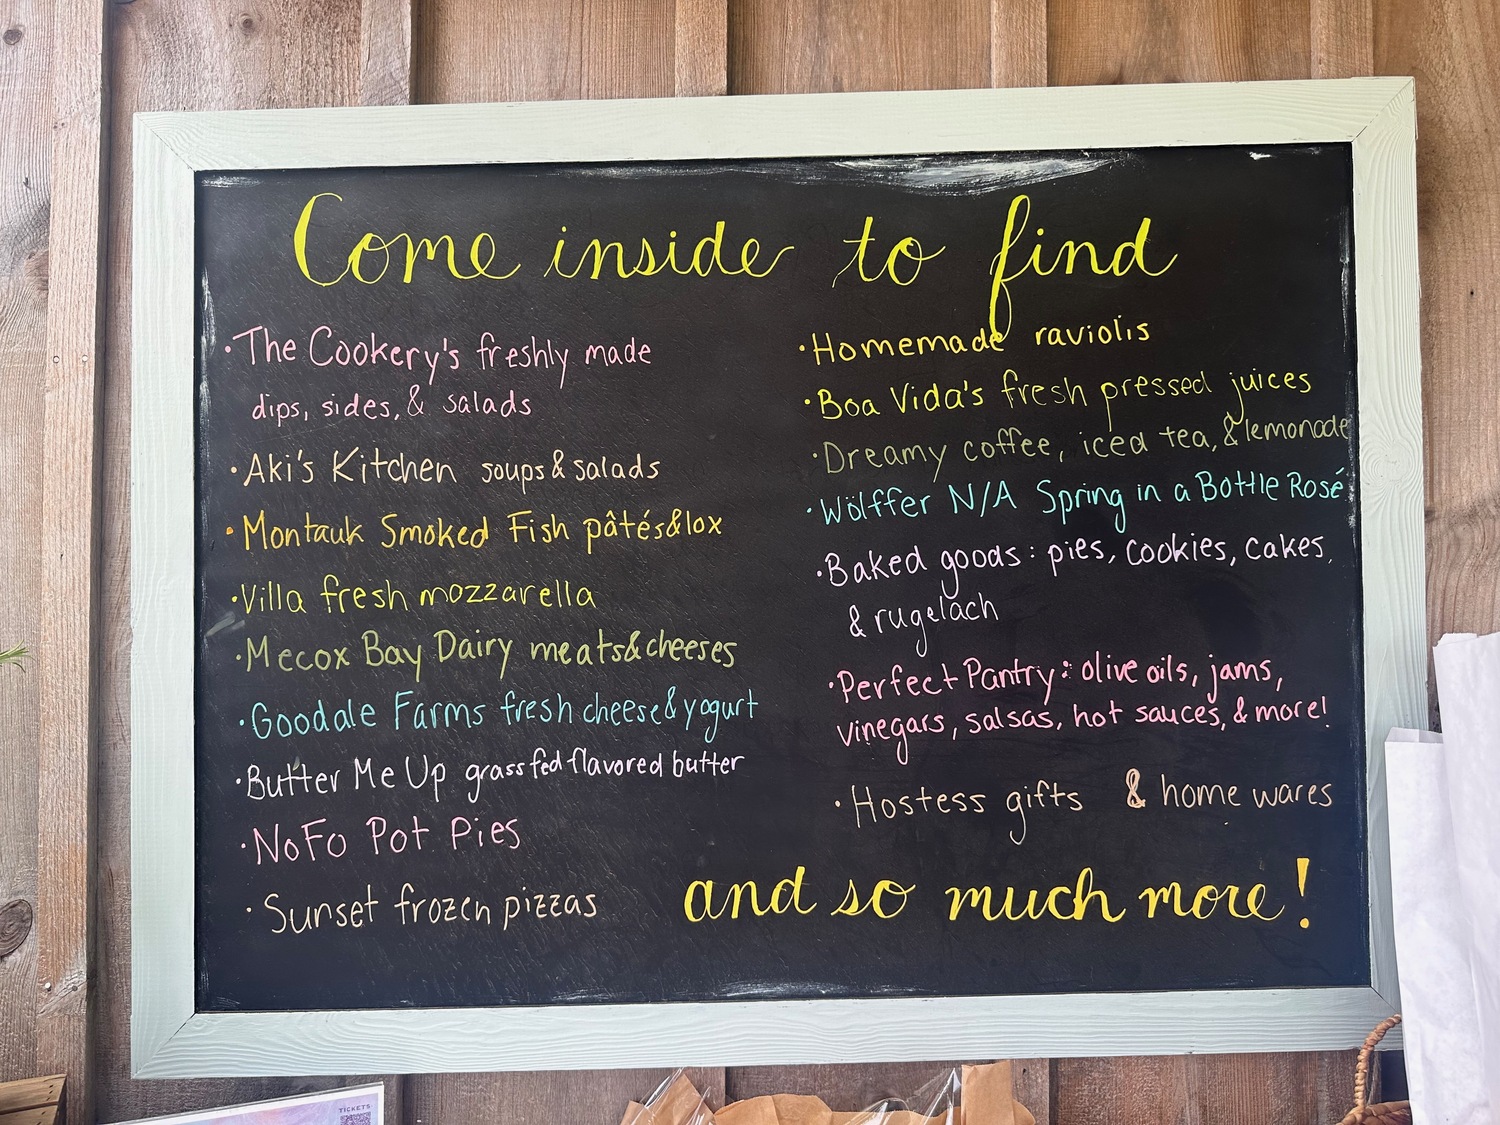 Come inside to find
· The Cookery's freshly made
dips, sides, & salads
· Aki's Kitchen soups & salads
· Montauk Smoked Fish pâtés & lox
· Villa fresh mozzarella
· Mecox Bay Dairy meats & cheeses
· Goodale Farms fresh cheese & yogurt
· Butter Me Up grassfed flavored butter
· NoFo Pot Pies
· Sunset frozen pizzas
· Homemade raviolis
· Boa Vida's fresh pressed juices
· Dreamy coffee, iced tea, & lemonade
· Wölffer N/A Spring in a Bottle Rosé
· Baked goods: pies, cookies, cakes,
& rugelach
· Perfect Pantry: olive oils, jams,
vinegars, salsas, hot sauces, & more!
· Hostess gifts & home wares
and so much more!
TICKETS